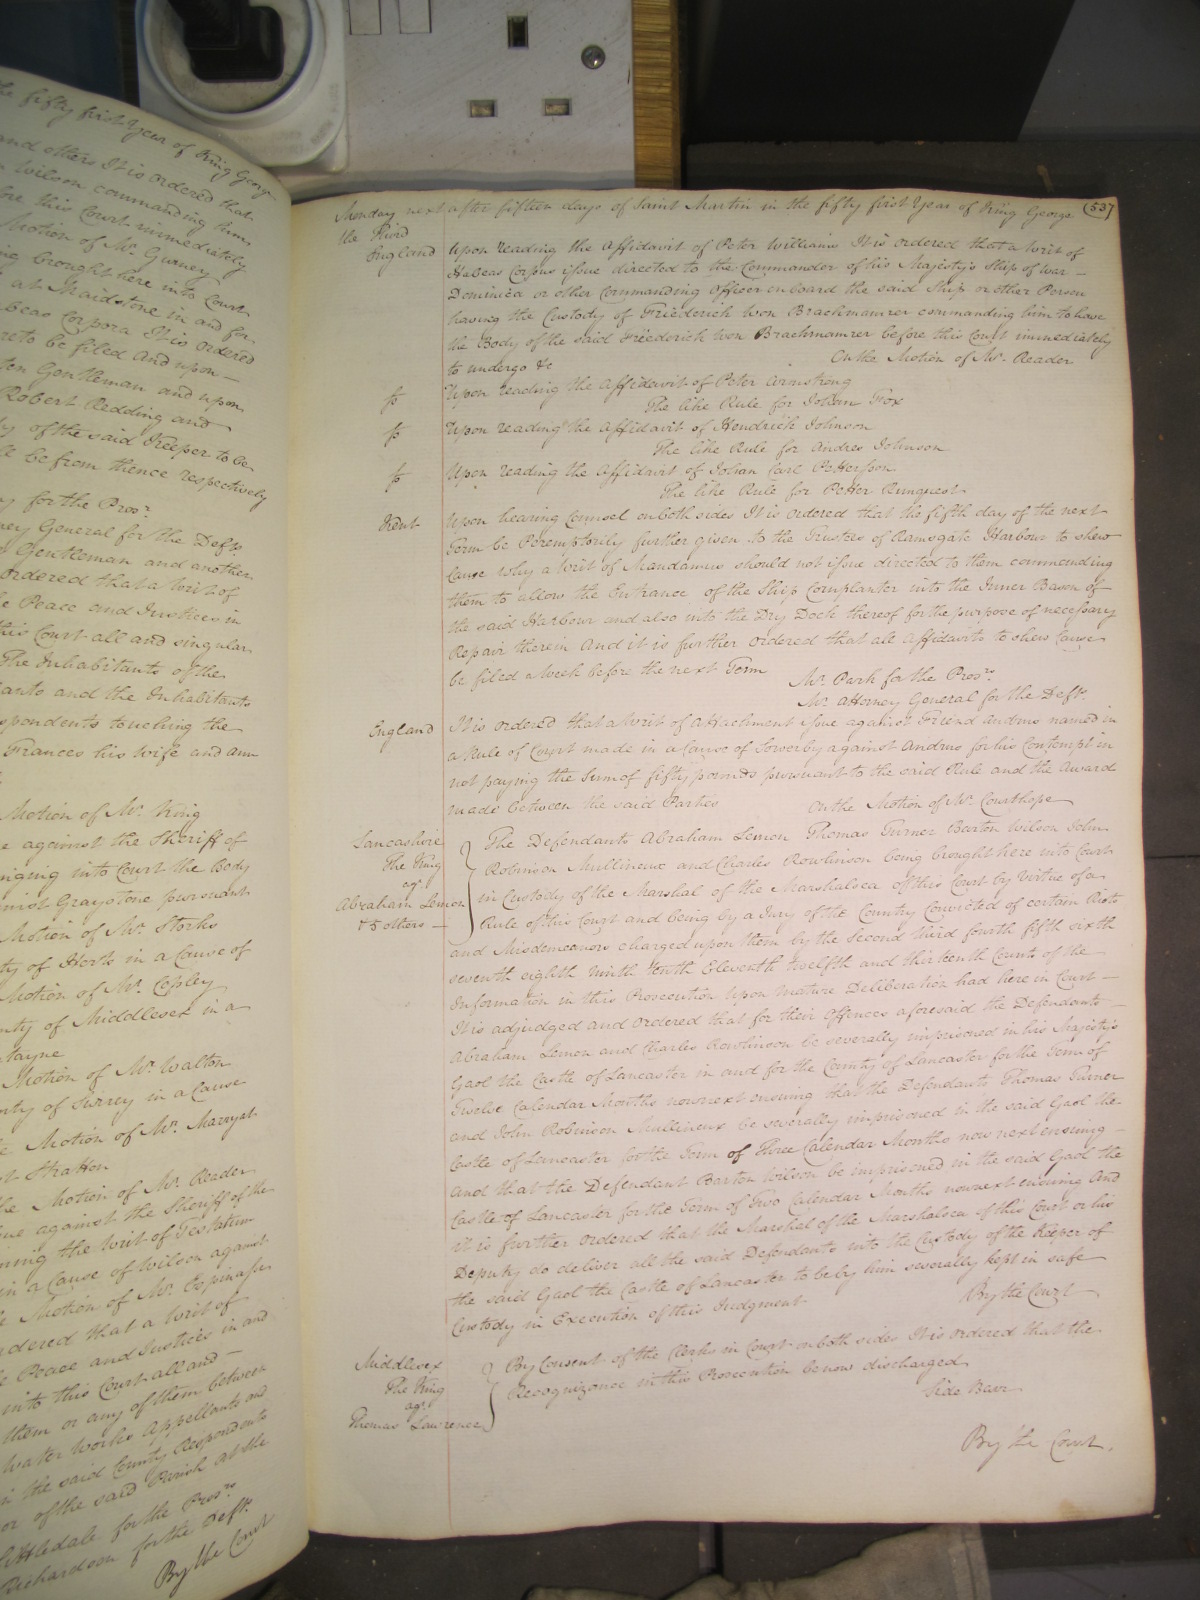 the fifty first Year of King George
and others It is ordered that
Wilson commanding him
fore this Court immediately
Motion of Mr. Gurney
ing brought here into Court
at Maidstone in and for
beas Corpora It is ordered
reto be filed And upon
ten Gentleman and upon
Robert Redding and
of the said Keeper to be
be from thence respectively
for the Prosr.
ney General for the Deft.
Gentleman and another
ordered that a Writ of
e Peace and Justices in
this Court all and singular
The Inhabitants of the
ants and the Inhabitants
spondents touching the
Frances his Wife and Ann
Motion of Mr. King
e against the Sheriff of
nging into Court the Body
Graystone pursuant
Motion of Mr. Storks
ty of Herts in a Cause of
Motion of Mr. Copley
nty of Middlesex in a
tayne
Motion of Mr. Walton
nty of Surrey in a Cause
Motion of Mr. Marryat
Stratton
the Motion of Mr. Reader
ue against the Sheriff of the
ning the Writ of Testatum
in a Cause of Wilson against
Motion of Mr. Espinasse
rdered that a Writ of
e Peace and Justices in and
into this Court all and
them or any of them between
Water Works Appellants and
n the said County Respondents
or of the said Parish at the
Littledale for the Prosrs.
Richardson for the Deft.
By the Court
Monday next after fifteen days of Saint Martin in the fifty first Year of King George (537
the Third
England Upon reading the Affidavit of Peter Williams It is ordered that a Writ of
Habeas Corpus issue directed to the Commander of his Majesty's Ship of War
Dominica or other Commanding Officer on board the said Ship or other Person
having the Custody of Friederich Won Brachmamrer commanding him to have
the Body of the said Friederich Won Brachmamrer before this Court immediately
to undergo &c On the Motion of Mr. Reader
fo Upon reading the Affidavit of Peter Armstrong
The like Rule for Johan Fox
fo Upon reading the Affidavit of Hendrick Johnson
The like Rule for Andres Johnson
fo Upon reading the Affidavit of Johan Carl Pettersson
The like Rule for Petter Runquest
Kent Upon hearing Counsel on both sides It is ordered that the fifth day of the next
Term be Peremptorily further given to the Trustees of Ramsgate Harbour to shew
Cause Why a Writ of Mandamus should not issue directed to them commanding
them to allow the Entrance of the Ship Complanter into the Inner Bason of
the said Harbour and also into the Dry Dock thereof for the purpose of necessary
Repair therein And it is further ordered that all Affidavits to shew Cause
be filed a Week before the next Term Mr. Park for the Prosrs.
Mr Attorney General for the Deft.
England It is ordered that a Writ of Attachment issue against Friend Andrus named in
a Rule of Court made in a Cause of Sowerby against Andrus for his Contempt in
not paying the Sum of fifty pounds pursuant to the said Rule and the Award
made between the said Parties On the Motion of Mr. Courthope
Lancashire
The King
agt.
Abraham Lemon
& 5 others
The Defendants Abraham Lemon Thomas Turner Barton Wilson John
Robinson Mullineux and Charles Rowlinson being brought here into Court
in Custody of the Marshal of the Marshalsea of this Court by Virtue of a
Rule of this Court and being by a Jury of the Country Convicted of certain Riots
and Misdemeanors charged upon them by the Second third fourth fifth sixth
seventh eighth ninth tenth Eleventh twelfth and thirteenth Counts of the
Information in this Prosecution Upon Mature Deliberation had here in Court
It is adjudged and ordered that for their Offences aforesaid the Defendants
Abraham Lemon and Charles Rowlinson be severally imprisoned in his Majesty's
Gaol the Castle of Lancaster in and for the County of Lancaster for the Term of
Twelve Calendar Months now next ensuing that the Defendants Thomas Turner
and John Robinson Mullineux be severally imprisoned in the said Gaol the
Castle of Lancaster for the Term of Three Calendar Months now next ensuing
And that the Defendant Barton Wilson be imprisoned in the said Gaol the
Castle of Lancaster for the Term of Two Calendar Months now next ensuing And
it is further ordered that the Marshal of the Marshalsea of this Court or his
Deputy do deliver all the said Defendants into the Custody of the Keeper of
the said Gaol the Castle of Lancaster to be by him severally kept in safe
Custody in Execution of this Judgment By the Court
Middlesex
The King
agt.
Thomas Lawrence
By Consent of the Clerks in Court on both sides It is ordered that the
Recognizance in this Prosecution be now discharged
Side Barr
By the Court.